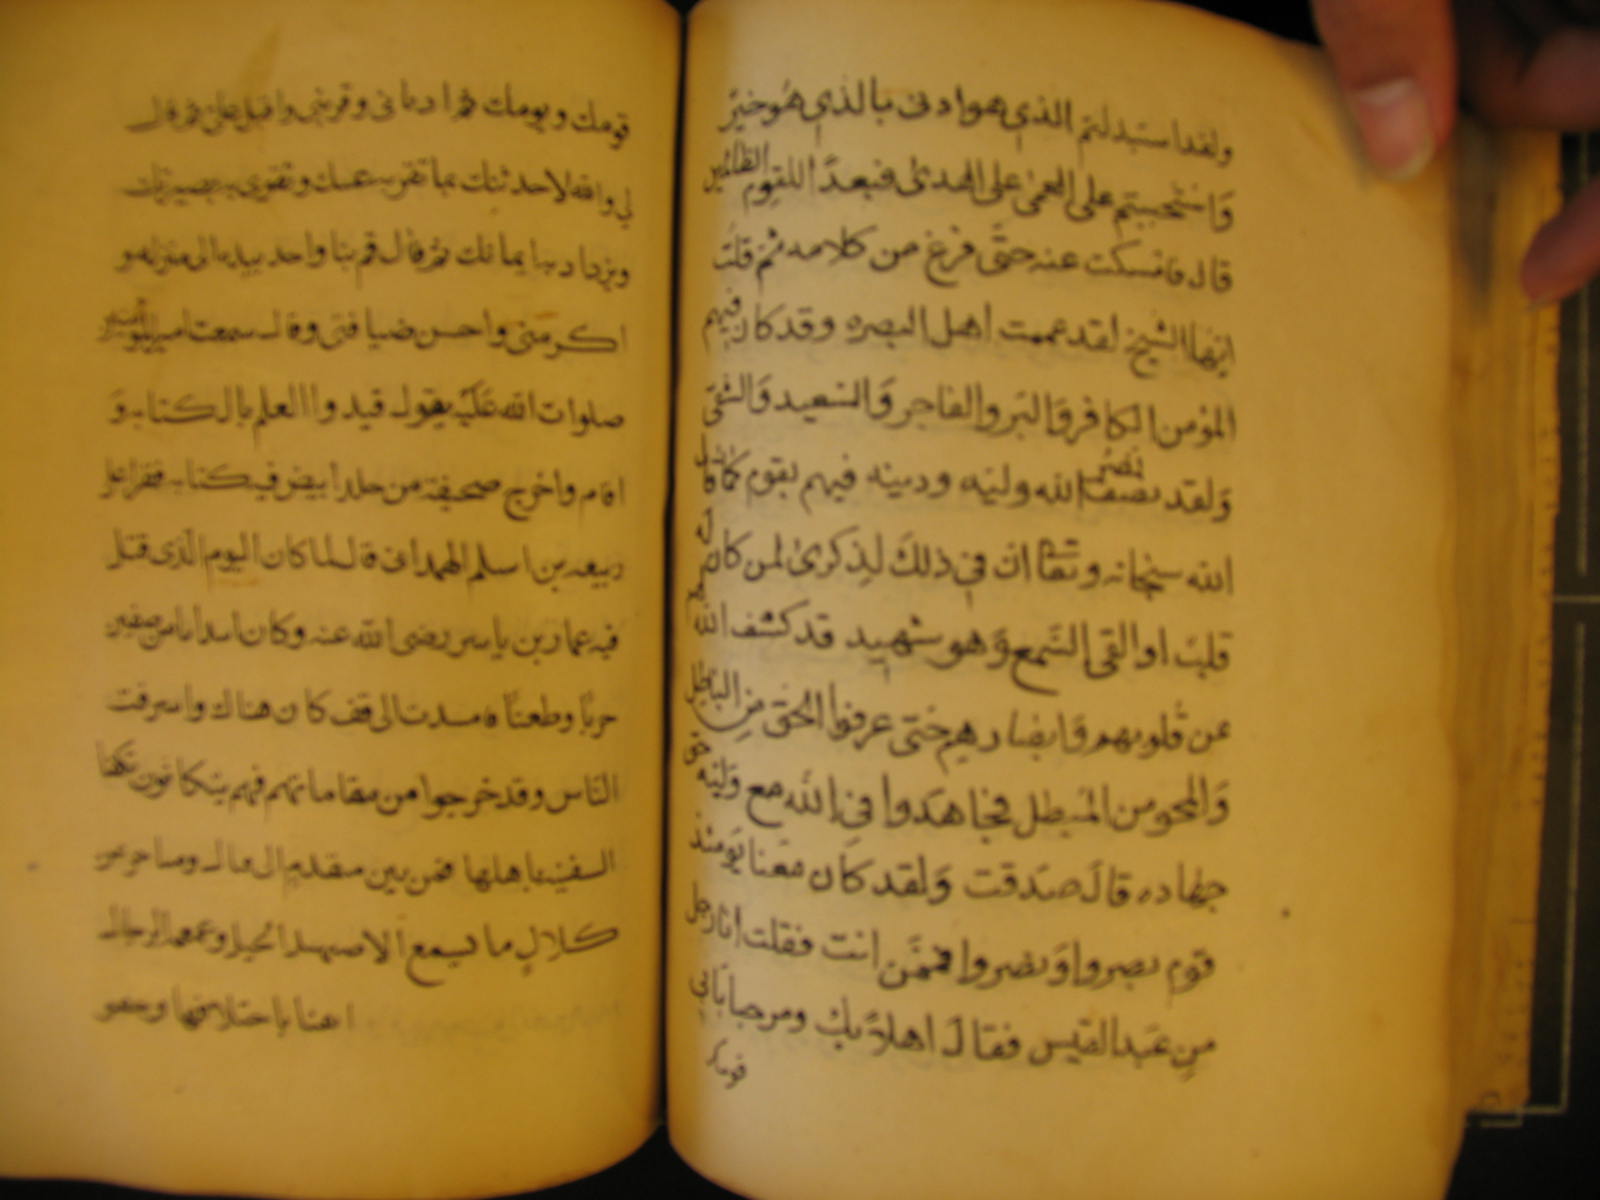 ولقد استبدلتم الذي هو ادنى بالذي هو خيرٌ
وَاستحببتم على العمى على الهدى فبعدًا للقوم الظالمين
قال فامسكت عنه حتى فرغ من كلامه ثم قلت
ايها الشيخ لقد عممت اهل البصره وقد كان فيهم
المؤمن والكافر وَالبَر والفاجر وَالسَعيد وَالشقي
وَلقد نصر الله وليّه ودينه فيهم بقوم كما قال
الله سبحانه وتعا ان في ذلكَ لَذِكرى لمن كان له
قلب او القى السَمع وَهو شهيد قد كشف الله
عن قُلوبهم وَابصارهم حَتى عرفوا الحَق مِن الباطِل
وَالمحق من المُبطل فجاهَدوا في الله مع وَليّه حق
جهاده قالَ صدَقت وَلقد كان معَنا يَومئذ
قوم بصروا وَنصروا فممَّن انت فقلت انا رجل
مِن عَبد القيس فقالَ اهلاً بك ومرحبا بابي
قومك
قومك ويومك ثم ادناني وقربني واقبل علىّ ثم قال
لي والله لاحدثنك بما تقر به عينك وتقوى به بصيرتك
ويزداد به ايمانك ثم قال قم بنا واخذ بيده الى منزله و
اكرمني واحسن ضيافتي وقال سمعت امير المؤمنين
صلوات الله عَليه يقول قيدوا العلم بالكتابه وَ
اقام واخرج صحيفة من جلد ابيض فيه كتابه فقرا على
ربيعه بن اسلم الهمداني قال لما كان اليوم الّذى قتل
فيه عمار بن ياسر رضى الله عنه وكان اشد ايام صفين
حربًا وطعنًا الى كان هناك واشرفت
النّاس وقد خرجوا من مقاماتهم فهم
السفينه باهلها فمن بين متقدم
كلالٍ ما يسمع الا صهيل الخيل وغمغمه الرجال